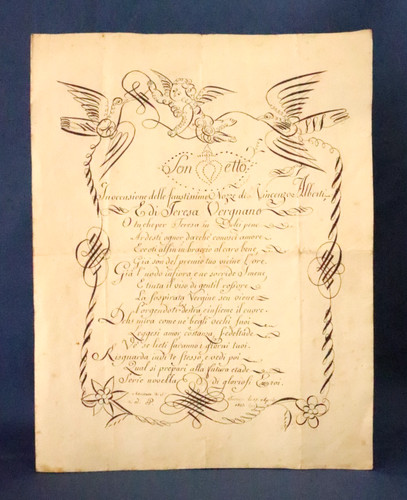 Sonetto
In occasione delle faustissime Nozze di Vincenzo Alberti
E di Teresa Vergnano
O tu che per Teresa in dolci pene
Ardesti ognor dacchè conosci amore
Eccoti alfin in braccio al caro bene
Già son del premio tuo vicine l'ore
Già l'nodo infiora, e ne sorride Imene
E tinta il viso di gentil rossore
La sospirata Vergine sen viene
Porgendoti destra e insieme il cuore
Deh mira come ne begli occhi suoi
Leggesi amor, costanza, fedeltade
se lieti faranno i giorni tuoi
Risguarda indi te stesso, e vedi poi
Qual si prepari alla futura etade
Serie novella di gloriosi Eroi.